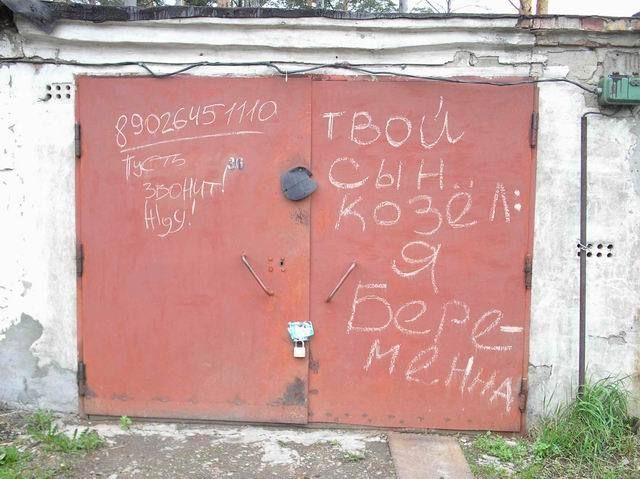 89026451110
Пусть
36
звонит!
Жду!
ТВОЙ
СЫН
КОЗЁЛ:
Я
Бере-
менна